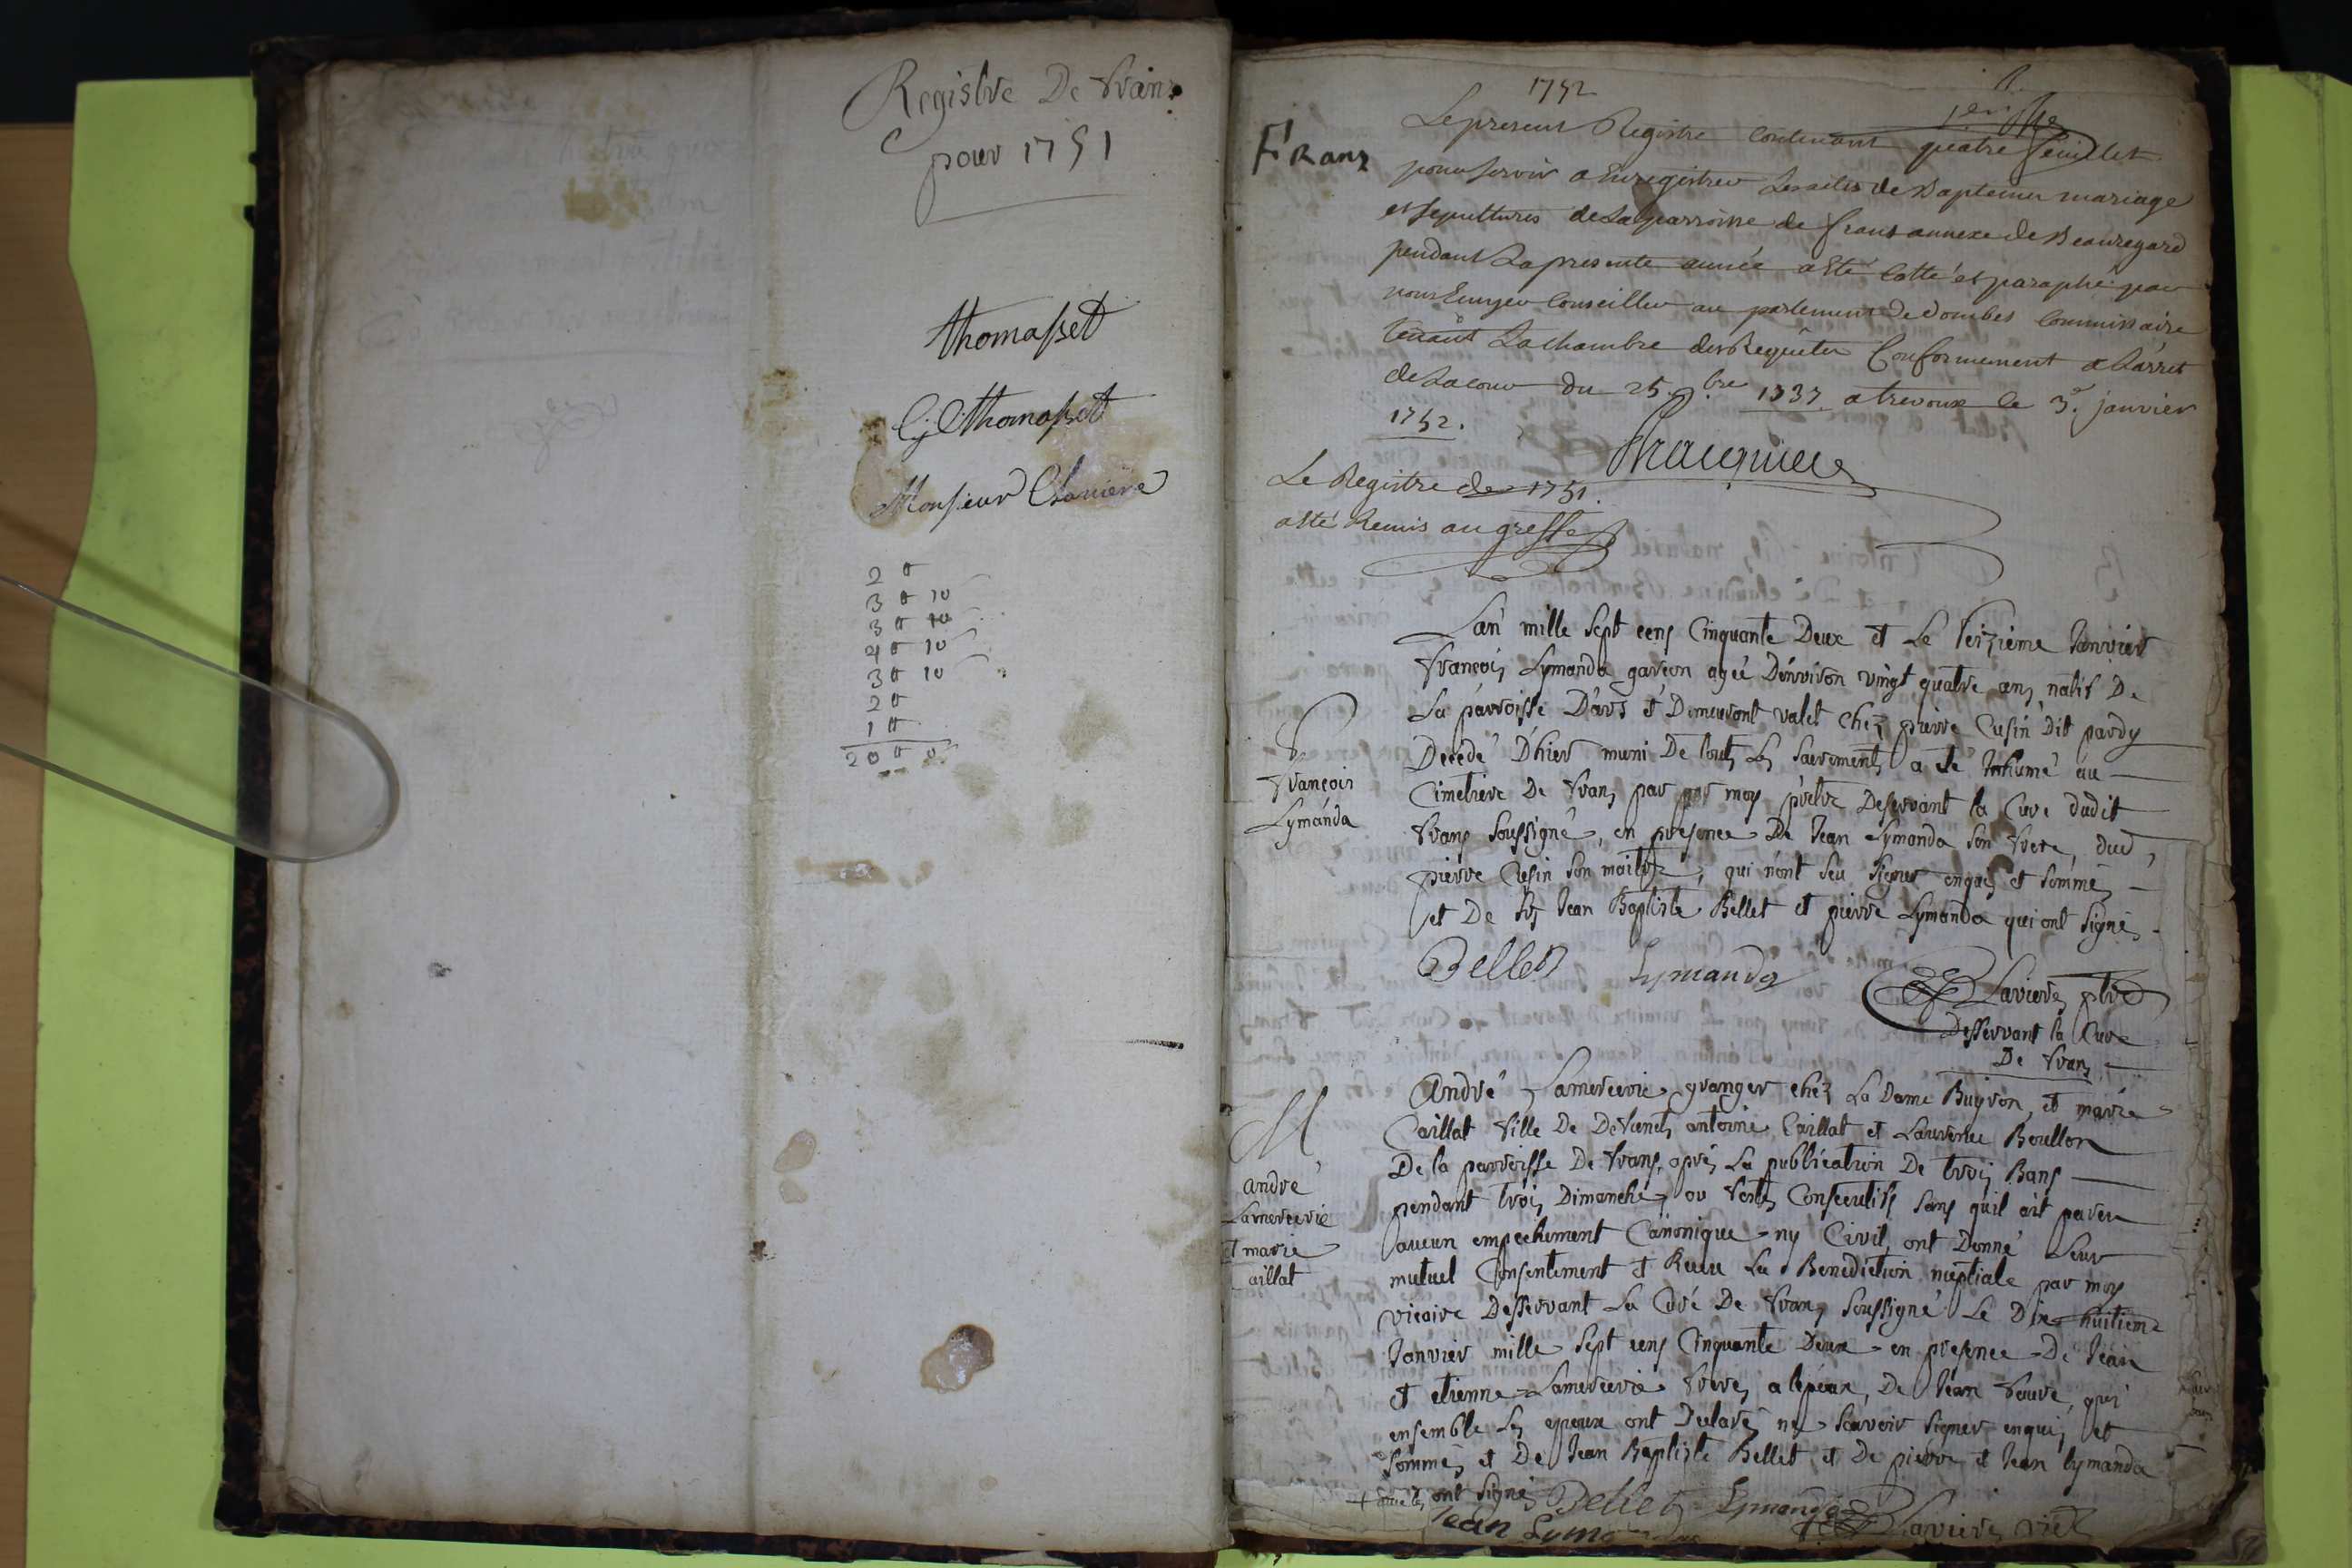 Registre De Frans
pour 1751
thomasset
thomasset
Monsieur Charriere
2 #
3 # 10
3 # 10
4 # 10
3 # 10
2 #
1 #
20 # 0
1752
1er
Franz
Le present Registre Contenant quatre feuillet
pour servir a Enregistrer Les actes de Baptemes mariage
et sepultures de La parroisse de frans annexe de Beauregard
pendant La presente année a été Cotté et paraphé par
nous Ecuyer Conseiller au parlement de dombes Commissaire
tenant La Chambre des Requêtes Conformement a L'arret
de La cour du 25. 9bre 1737 a trevoux le 3e. janvier
1752.
Le Registre de 1751.
a été Remis au greffe
L'an mille sept cens Cinquante Deux et Le seizième Janvier
François Lymanda garçon agée D'environ vingt quatre ans natif De
La parroisse D'ars et Demeurant valet chez pierre Cusin Dit pardy
Decedé D'hier muni De touts Les sacrements a été Inhumé au
Cimetiere De Frans par moy prêtre Deservant la Cure dudit
Frans soussigné, en presence De Jean Lymanda son Frere, dud,
pierre Cusin son maitre, qui n'ont seu signer enquis et sommés
et De Jean Baptiste Bellet et pierre Lymanda qui ont signé
François
Lymánda
Bellet Lymanda Laviere ptre
Desservant la Cure
De Frans
André Lamercerie granger chez La Dame Buyron, et marie
Caillat Fille De Defunct antoine Caillat et Laurence Boullon
De la parroisse De Frans, aprés La publication De trois Bans
pendant trois Dimanches ou Festes Consecutifs sans quil ait paru
aucun empechement Canonique ny Civil, ont Donné Leur
mutuel Consentement et Reçu La Benediction nuptiale par moy
vicaire Desservant La Cure De Frans soussigné Le Dix huitieme
Janvier mille sept cens Cinquante Deux en presence De Jean
et etienne Lamercerie Freres a lepoux, De Jean Favre, qui
ensemble Les epoux ont Declaré ne Scavoir signer enquis et
Sommés et De Jean Baptiste Bellet et De pierre et Jean lymanda
M
andré
Lamercerie
et marie
aillat
ont signé Bellet Lymanda Laviere vic
Jean Lyma